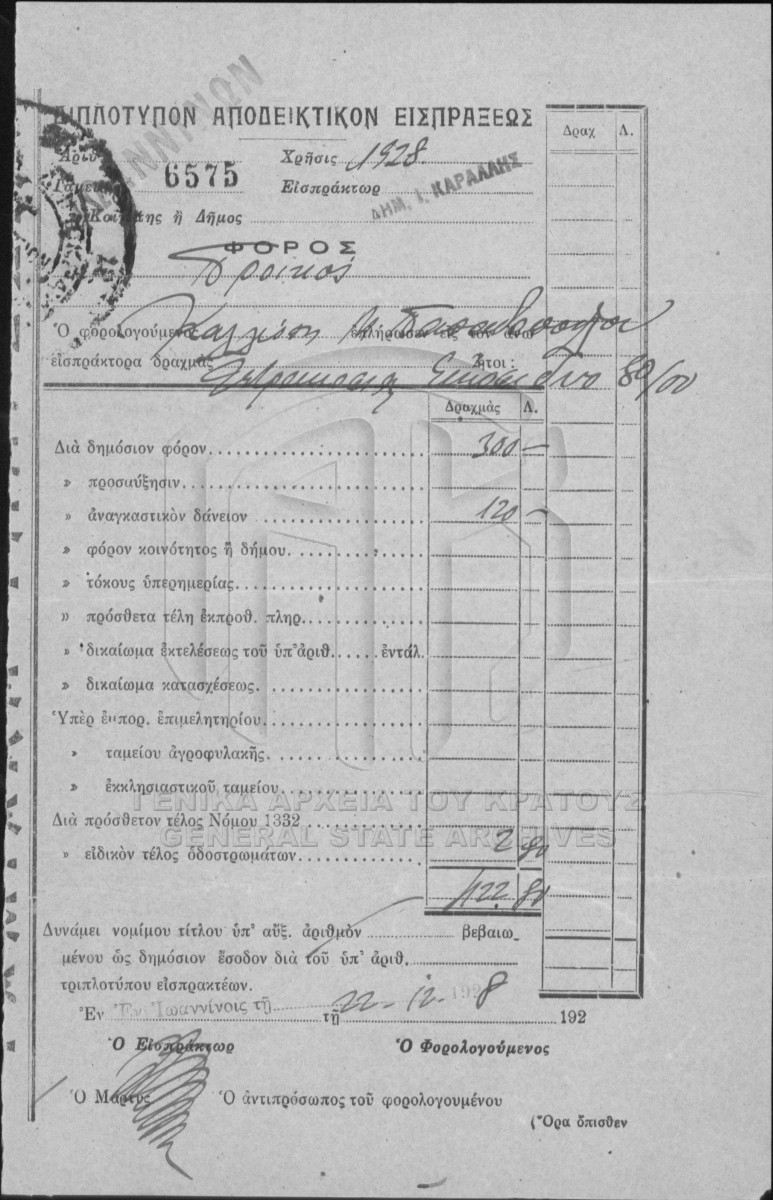 ΙΩΑΝΝΙΝΩΝ
ΔΙΠΛΟΤΥΠΟΝ ΑΠΟΔΕΙΚΤΙΚΟΝ ΕΙΣΠΡΑΞΕΩΣ
Δραχ Λ.
Ἀριθ
6575
Χρῆσις 1928.
Ταμεῖ
Εἰσπράκτωρ
ΔΗΜ. Ι. ΚΑΡΑΛΛΗΣ
Κοινότης ἢ Δῆμος
ΦΟΡΟΣ
Προικός
Ὁ φορολογούμενο ἐπλήρωσεν εἰς τὸν ἄνω
εἰσπράκτορα δραχμὰς ἤτοι:
Τετρακοσίας Εἴκοσι δύο 80/00
Δραχμὰς Λ.
Διὰ δημόσιον φόρον 300 —
» προσαύξησιν
» ἀναγκαστικὸν δάνειον 120 —
» φόρον κοινότητος ἢ δήμου
» τόκους ὑπερημερίας
» πρόσθετα τέλη ἐκπροθ. πληρ.
» δικαίωμα ἐκτελέσεως τοῦ ὑπ' ἀριθ. ἐντάλ.
» δικαίωμα κατασχέσεως.
Ὑπὲρ ἐμπορ. ἐπιμελητηρίου
» ταμείου ἀγροφυλακῆς
» ἐκκλησιαστικοῦ ταμείου
ΓΕΝΙΚΑ ΑΡΧΕΙΑ ΤΟΥ ΚΡΑΤΟΥΣ
Διὰ πρόσθετον τέλος Νόμου 1332
GENERAL STATE ARCHIVES
» εἰδικὸν τέλος ὁδοστρωμάτων 2 80
422 80
Δυνάμει νομίμου τίτλου ὑπ' αὔξ. ἀριθμὸν βεβαιω
μένου ὡς δημόσιον ἔσοδον διὰ τοῦ ὑπ' ἀριθ.
τριπλοτύπου εἰσπρακτέων.
Ἐν Ἐν Ἰωαννίνοις τῇ τῇ 22-12-1928 192
Ὁ Εἰσπράκτωρ Ὁ Φορολογούμενος
Ὁ Μάρτυς Ὁ ἀντιπρόσωπος τοῦ φορολογουμένου
(Ὅρα ὄπισθεν